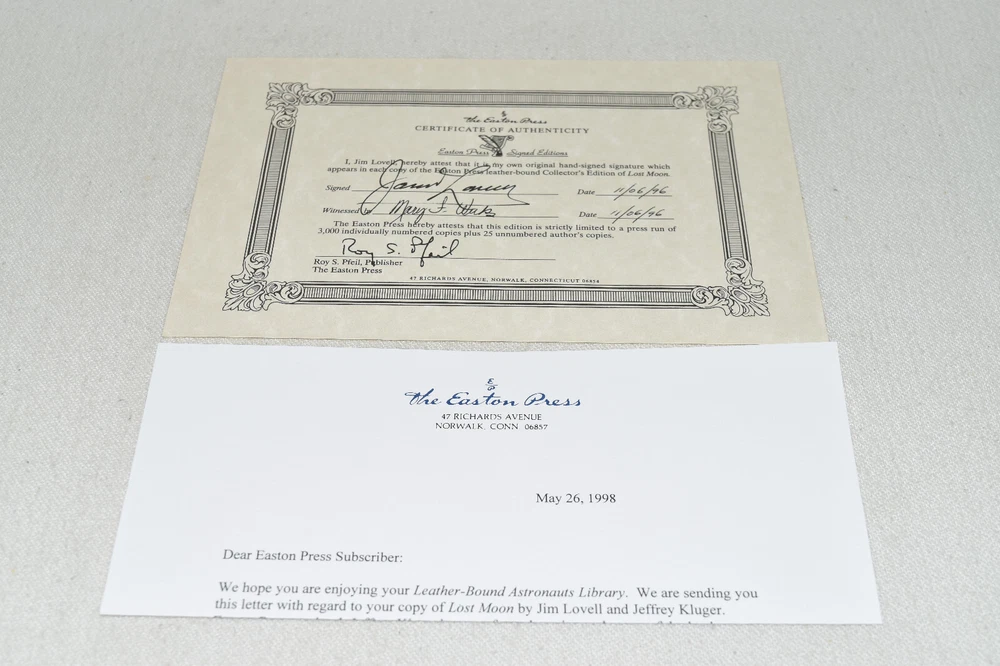 The Easton Press
CERTIFICATE OF AUTHENTICITY
Easton Press Signed Editions
I, Jim Lovell, hereby attest that it is my own original hand-signed signature which
appears in each copy of the Easton Press leather-bound Collector's Edition of Lost Moon.
Signed Date 11/06/96
Witnessed by Mary F. Date 11/06/96
The Easton Press hereby attests that this edition is strictly limited to a press run of
3,000 individually numbered copies plus 25 unnumbered author's copies.
Roy S. Pfeil
Roy S. Pfeil, Publisher
The Easton Press
47 RICHARDS AVENUE, NORWALK, CONNECTICUT 06854
The Easton Press
47 RICHARDS AVENUE
NORWALK, CONN. 06857
May 26, 1998
Dear Easton Press Subscriber:
We hope you are enjoying your Leather-Bound Astronauts Library. We are sending you
this letter with regard to your copy of Lost Moon by Jim Lovell and Jeffrey Kluger.